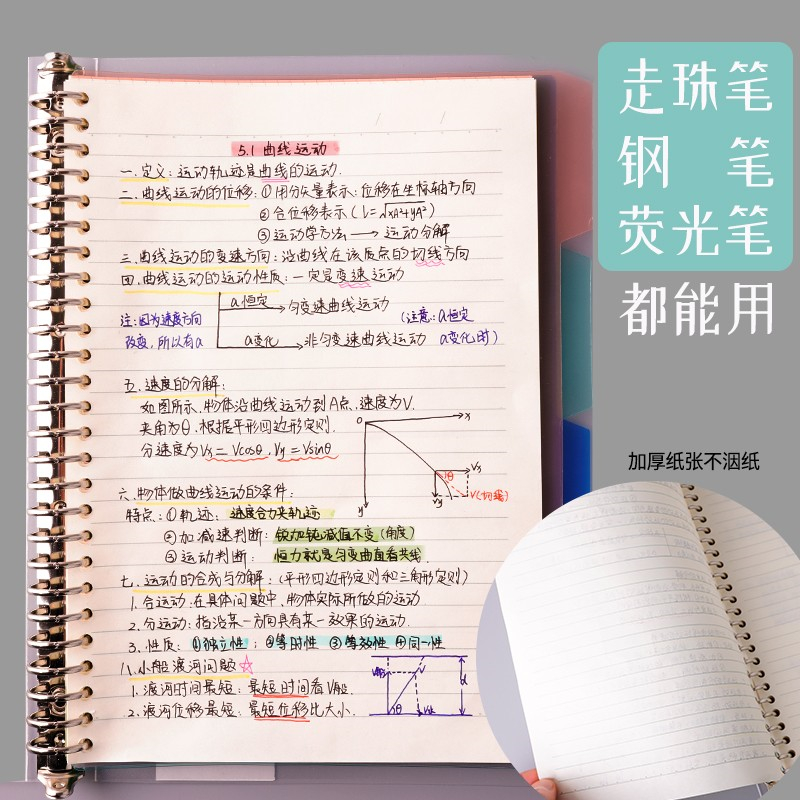 走珠笔
钢 笔
荧光笔
都能用
加厚纸张不洇纸
5.1 曲线运动
一.定义:运动轨迹是曲线的运动.
二.曲线运动的位移:①用分矢量表示:位移在坐标轴方向
②合位移表示(l=√xA²+yA²)
③运动学方法→运动分解
三.曲线运动的变速方向:沿曲线在该质点的切线方向
四.曲线运动的运动性质:一定是变速运动
a恒定 匀变速曲线运动
注:因为速度方向
改变,所以有a
a变化 非匀变速曲线运动
(注意:a恒定
a变化时)
五.速度的分解:
如图所示.物体沿曲线运动到A点,速度为V.
夹角为θ.根据平形四边形定则.
分速度为Vx=Vcosθ.Vy=Vsinθ
o
x
y
θ
Vx
Vy
V(切线)
六.物体做曲线运动的条件:
特点:①轨迹:速度合力夹轨迹
②加减速判断:锐加钝减值不变(角度)
③运动判断:恒力就是匀变曲直看共线
七.运动的合成与分解:(平形四边形定则和三角形定则)
1.合运动:在具体问题中,物体实际所做的运动
2.分运动:指沿某一方向具有某一效果的运动.
3.性质:①独立性;②等时性 ③等效性 ④同一性
八.小船渡河问题☆
1.渡河时间最短:最短时间看V船.
2.渡河位移最短:最短位移比大小.
V船
V
θ
V水
d